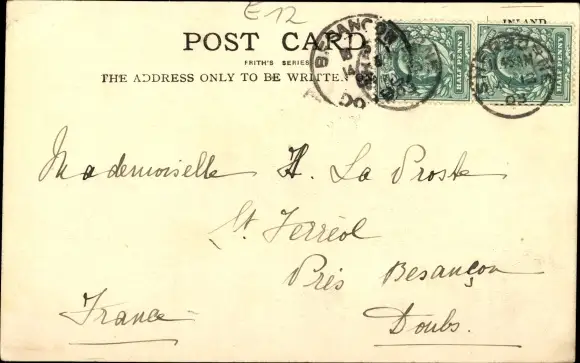 E 12
POST CARD
INLAND
FRITH'S SERIES
THE ADDRESS ONLY TO BE WRITTE
HALF PENNY
HALF PENNY
BESANÇON
Mademoiselle H. La Proste
St. Ferréol
Près Besançon
France
Doubs.